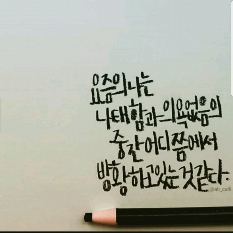 요즘의 나는
나태함과 의욕없음의
중간 어디쯤에서
방황하고있는 것 같다.